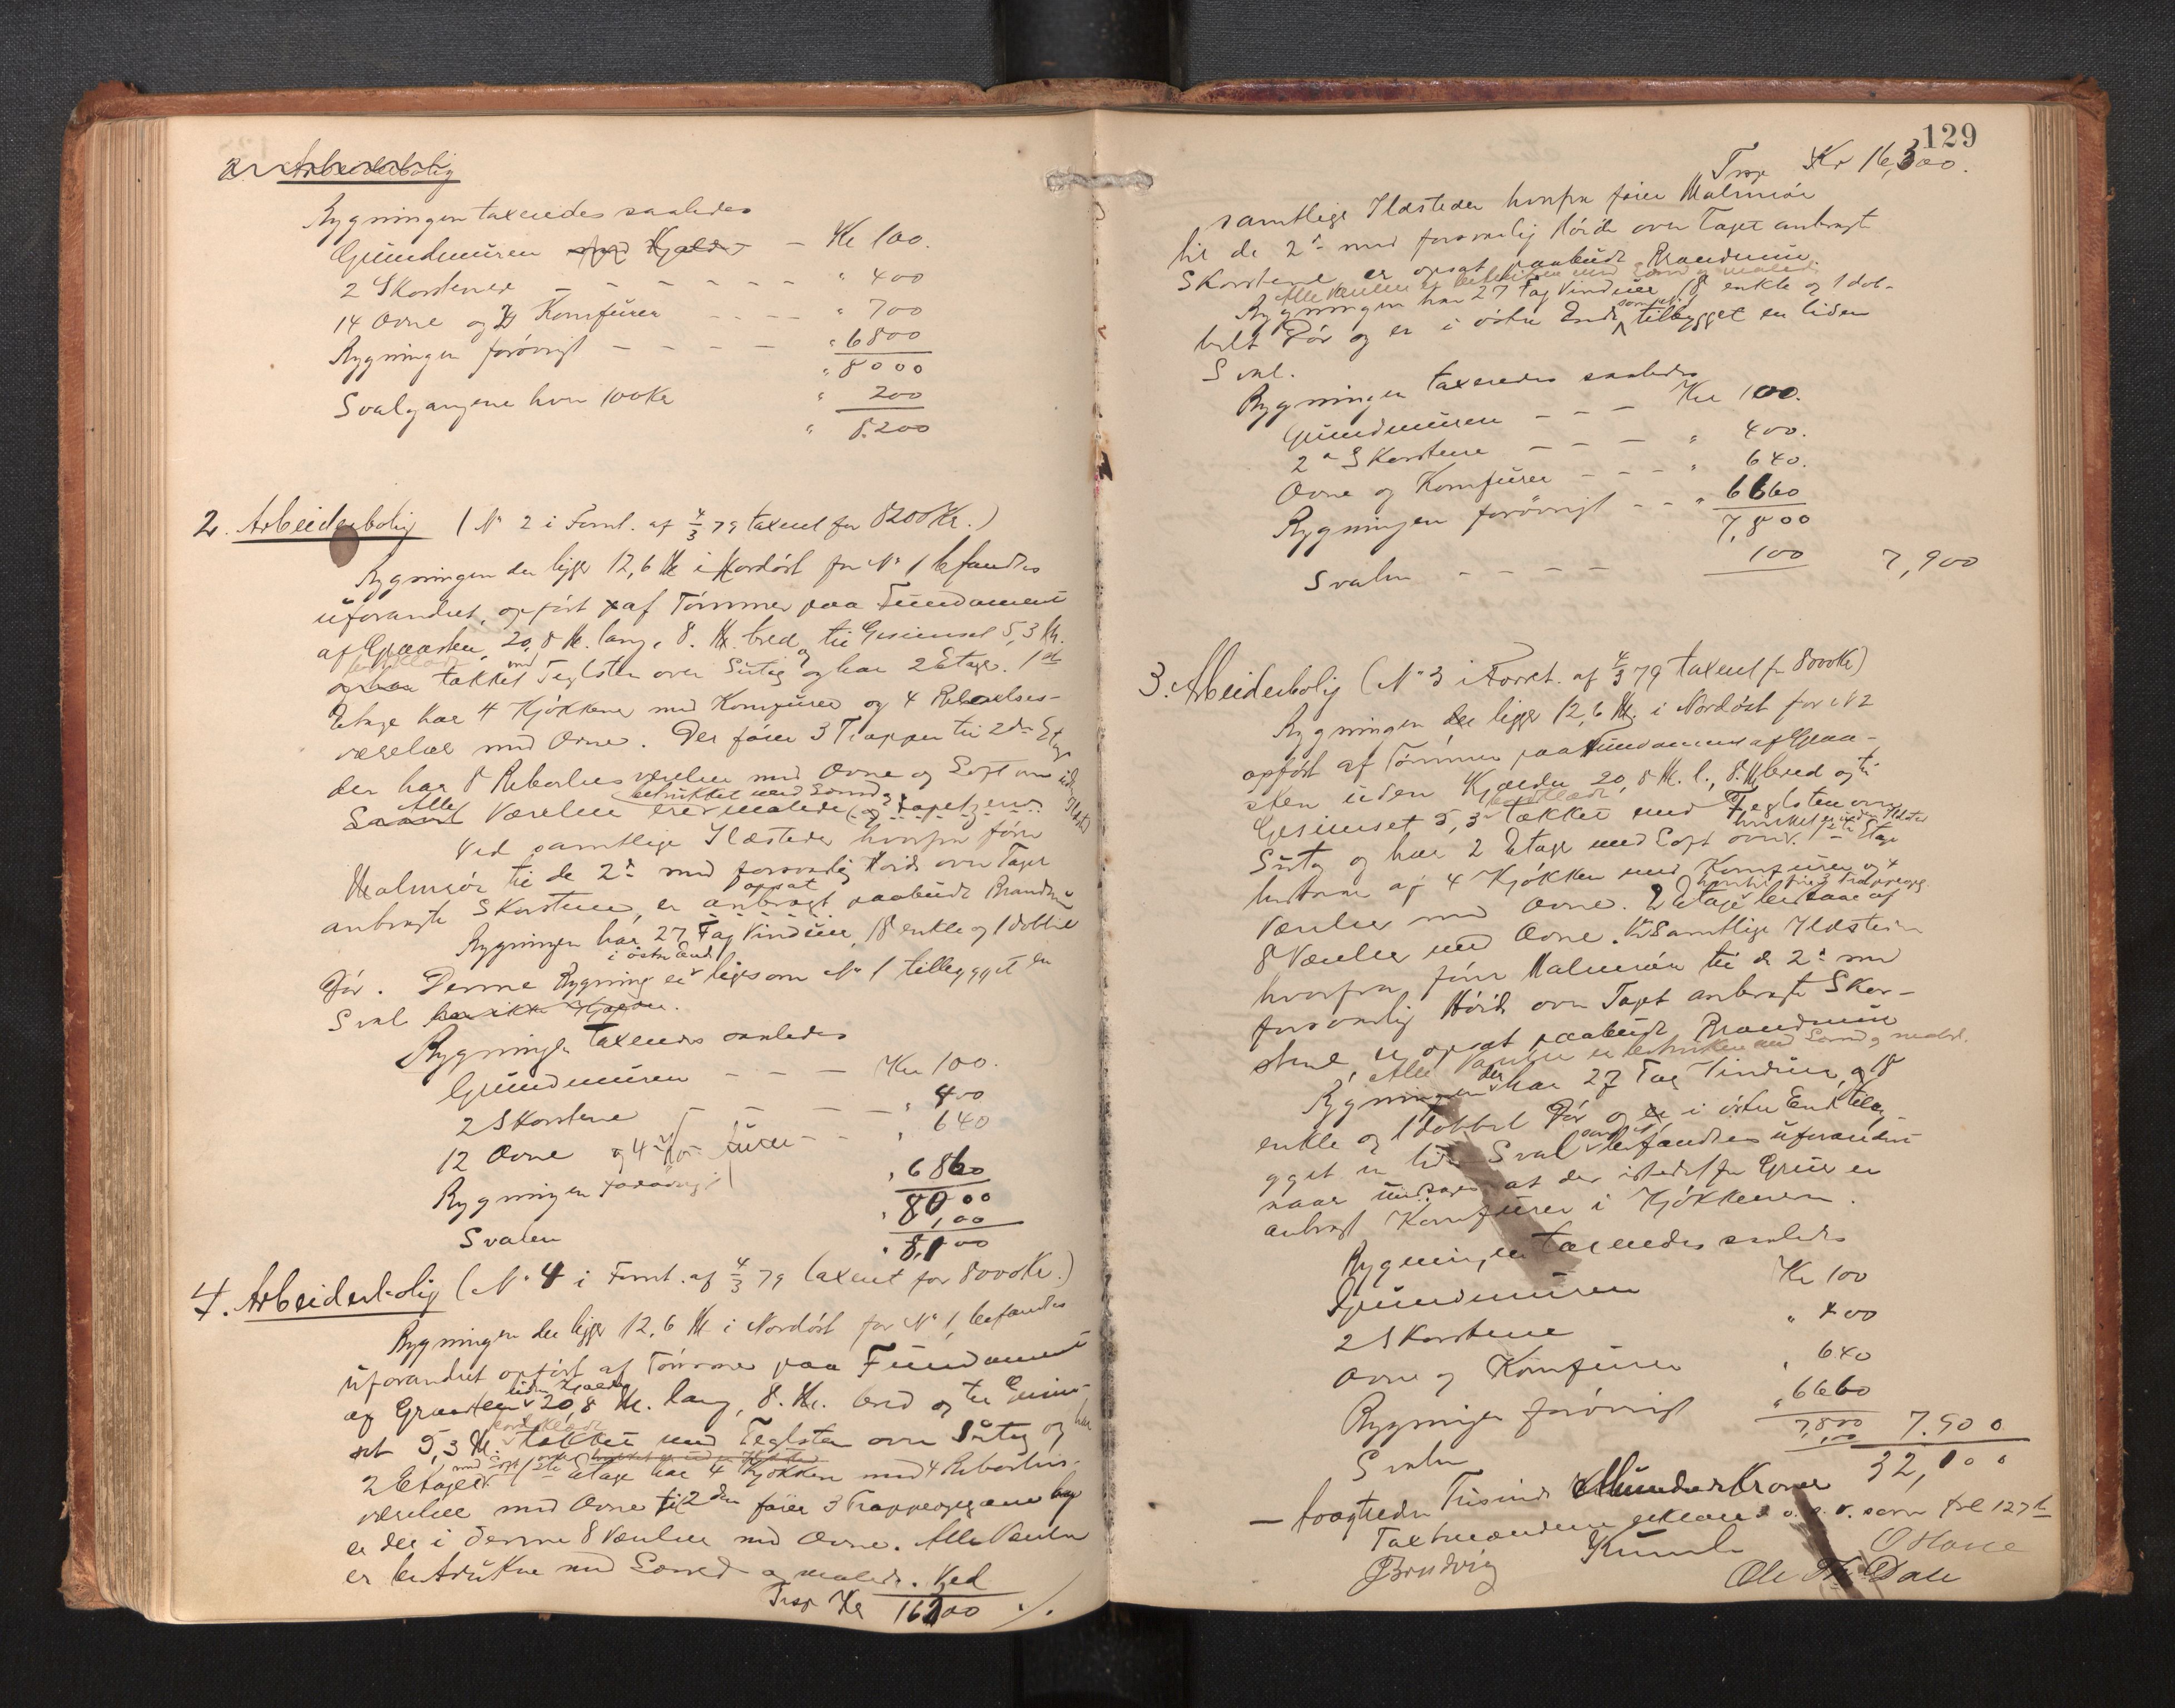 2. Arbeiderbolig
Bygningen taxeredes saaledes
Grundmuren med Kjelder – Kr 100.
2 Skorstene – – – – – " 400
14 Ovne og Komfurer – – – – " 700
Bygningen forøvrigt – – – – " 6800
" 8000
Svalgangene hver 100 Kr " 200
" 8.200
2. Arbeiderbolig (No 2 i Forret. af 4/3 79 taxeret for 8200 Kr.)
Bygningen der ligger 12,6 M. i Nordøst for No 1 befandtes
uforandret, opført af Tømmer paa Fundament
af Graasten, 20,8 M. lang, 8. M. bred og til Gesimset 5,3 M.
bordklædt
og har takket med Teglsten over Sutag og har 2 Etager. 1ste
Etage har 4 Kjøkkener med Komfurer og 4 Beboelses-
værelser med Ovne. Der fører 3 Trapper til 2den Etage
der har 8 Beboelsesværelser med Ovne og Loft over uden Ildsted
betrukket med Lærred
Samtl Alle Værelser er malede og tapetzeret.
Ved samtlige Ildsteder hvorfra fører
Malmrør til de 2de med forsvarlig Høide over Taget
opsat
anbragte Skorstene, er anbragt paabudt Brandmur
Bygningen har 27 Fag Vinduer, 18 enkle og 1 dobbel
i østre Ende
Dør. Denne Bygning er ligesom No 1 tilbygget en
Sval har ikke Kjelder.
Bygningen taxeredes saaledes
Grundmuren – – – Kr 100.
2 Skorstene – – – – " 400
12 Ovne og 4 Komfurer – – " 640
Bygningen forøvrigt " 6860
" 8000
Svalen " 100
" 8,100
4. Arbeiderbolig (No 4 i Forret. af 4/3 79 taxeret for 8000 Kr.)
Bygningen der ligger 12,6 M. i Nordøst for No 1, befandtes
uforandret opført af Tømmer paa Fundament
uden Kjelder
af Graasten 20,8 M. lang, 8. M. bred og til Gesim-
bordklædt
set 5,3 M. takket med Teglsten over Sutag og har
med Loft over hvilket er uden Ildsted
2 Etager. 1ste Etage har 4 Kjøkken med 4 Beboelses-
værelser med Ovne til 2den fører 3 Trappeopgange og
er der i denne 8 Værelser med Ovne. Alle Værelser
er betrukne med Lærred og malede. Ved
Trsp Kr 16300 ./.
129
Trsp Kr 16,300.
samtlige Ildsteder hvorfra fører Malmrør
til de 2de med forsvarlig Høide over Taget anbragte
Skorstene er opsat paabudt Brandmur.
Alle Værelser er betrukkne med Lærred og malede
Bygningen har 27 Fag Vinduer, 18 enkle og 1 dob-
belt Dør og er i østre Ende tilbygget en liden
Sval.
Bygningen taxeredes saaledes
Grundmuren – – – Kr 100.
2de Skorstene – – – " 400.
Ovne og Komfurer – – – " 640.
Bygningen forøvrigt – – " 6660
7,800
Svalen – – – – 100 7,900
3. Arbeiderbolig (No 3 i Forret. af 4/3 79 taxeret for 8000 Kr)
Bygningen der ligger 12,6 M. i Nordøst for No 2
opført af Tømmer paa Fundament af Graa-
sten uden Kjelder 20,8 M. l., 8. M. bred og til
bordklædt
Gesimset 5,3 takket med Teglsten over
hvilket er uden Ildsted
Sutag og har 2 Etage med Loft over. 1ste Etage
bestaar af 4 Kjøkken med Komfurer og 4
hvortil fører 3 Trappeopg.
Værelser med Ovne. 2 Etage bestaar af
8 Værelser med Ovne. Ved Samtlige Ildsteder
hvorfra fører Malmrør til de 2de med
forsvarlig Høide over Taget anbragte Skor-
stene, er opsat paabudt Brandmur
Alle Værelser er betrukken med Lærred og malet.
Bygningen der har 27 Fag Vinduer og 18
enkle og 1 dobbel Dør og er i østre Ende tilby-
gget en liden Sval befandtes uforandret
naar undtages at der istedetfor Gruer er
anbragt Komfurer i Kjøkkenerne.
Bygningen taxeredes saaledes
Grundmuren Kr 100
2 Skorstene " 400
Ovne og Komfurer " 640
Bygningen forøvrigt " 6660
7,800 7.900
Svalen 100
32,100
– toogtredve Tusinde Hundrede Kroner
Taxtmændene erklærede o.s.v. som fol 127b
JBrudvig Kumle OHove
Ole Th Dale